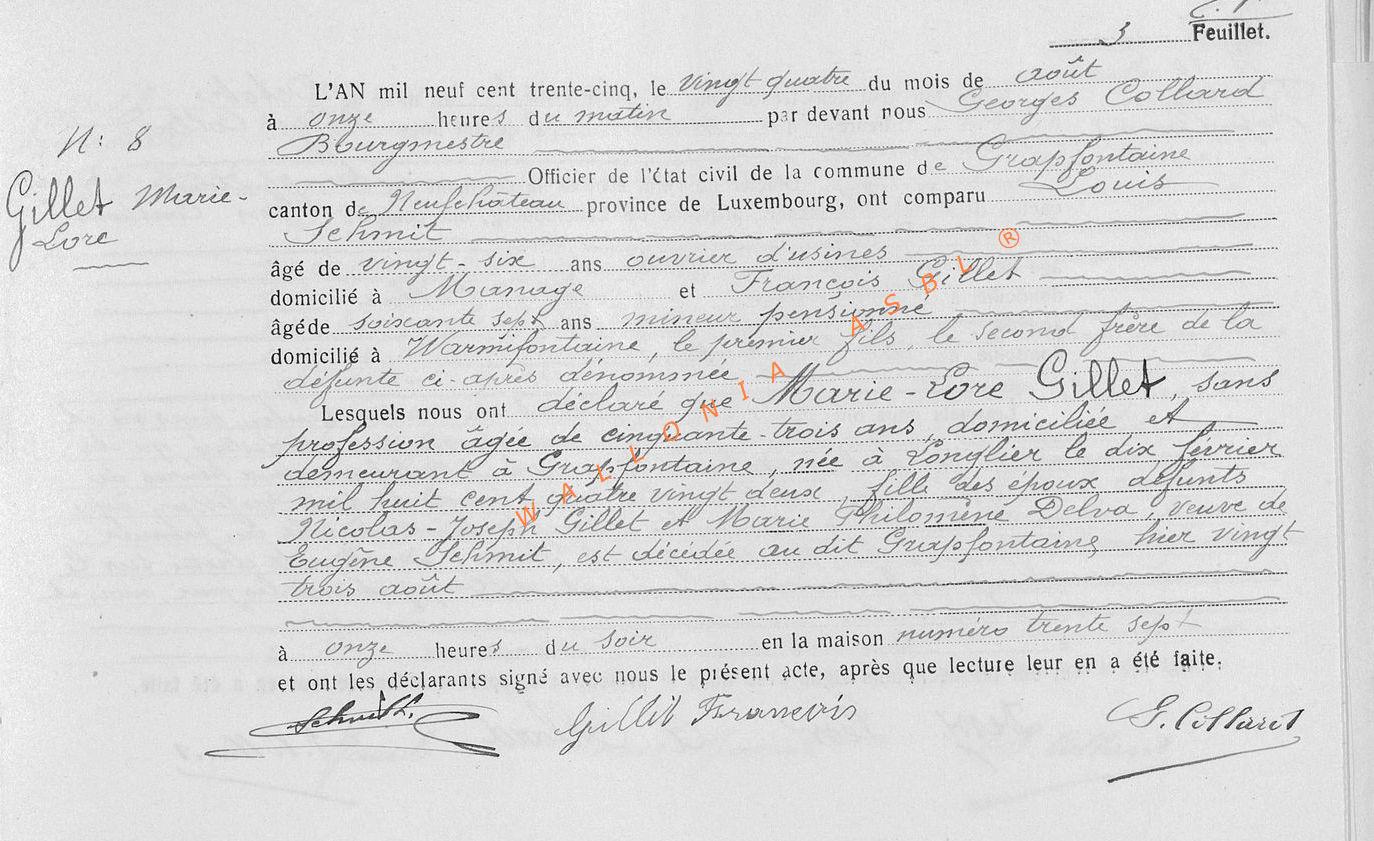 3 Feuillet.
L'AN mil neuf cent trente-cinq, le vingt quatre du mois de août
à onze heures du matin par devant nous Georges Collard
Bourgmestre
Officier de l'État civil de la commune de Grapfontaine
canton de Neufchâteau province de Luxembourg, ont comparu Louis
Schmit
âgé de vingt-six ans ouvrier d'usines
domicilié à Manage et François Gillet
âgé de soixante sept ans mineur pensionné
domicilié à Warmifontaine, le premier fils, le second frère de la
défunte ci-après dénommée
Lesquels nous ont déclaré que Marie-Lore Gillet, sans
profession âgée de cinquante-trois ans, domiciliée et
demeurant à Grapfontaine, née à Longlier le dix février
mil huit cent quatre vingt deux, fille des époux défunts
Nicolas-Joseph Gillet et Marie Philomène Delva, veuve de
Eugène Schmit, est décédée au dit Grapfontaine, hier vingt
trois août
à onze heures du soir en la maison numéro trente sept
et ont les déclarants signé avec nous le présent acte, après que lecture leur en a été faite.
Schmit L. Gillet François G. Collard
N: 8
Gillet Marie-
Lore
WALLONIA ASBL ®